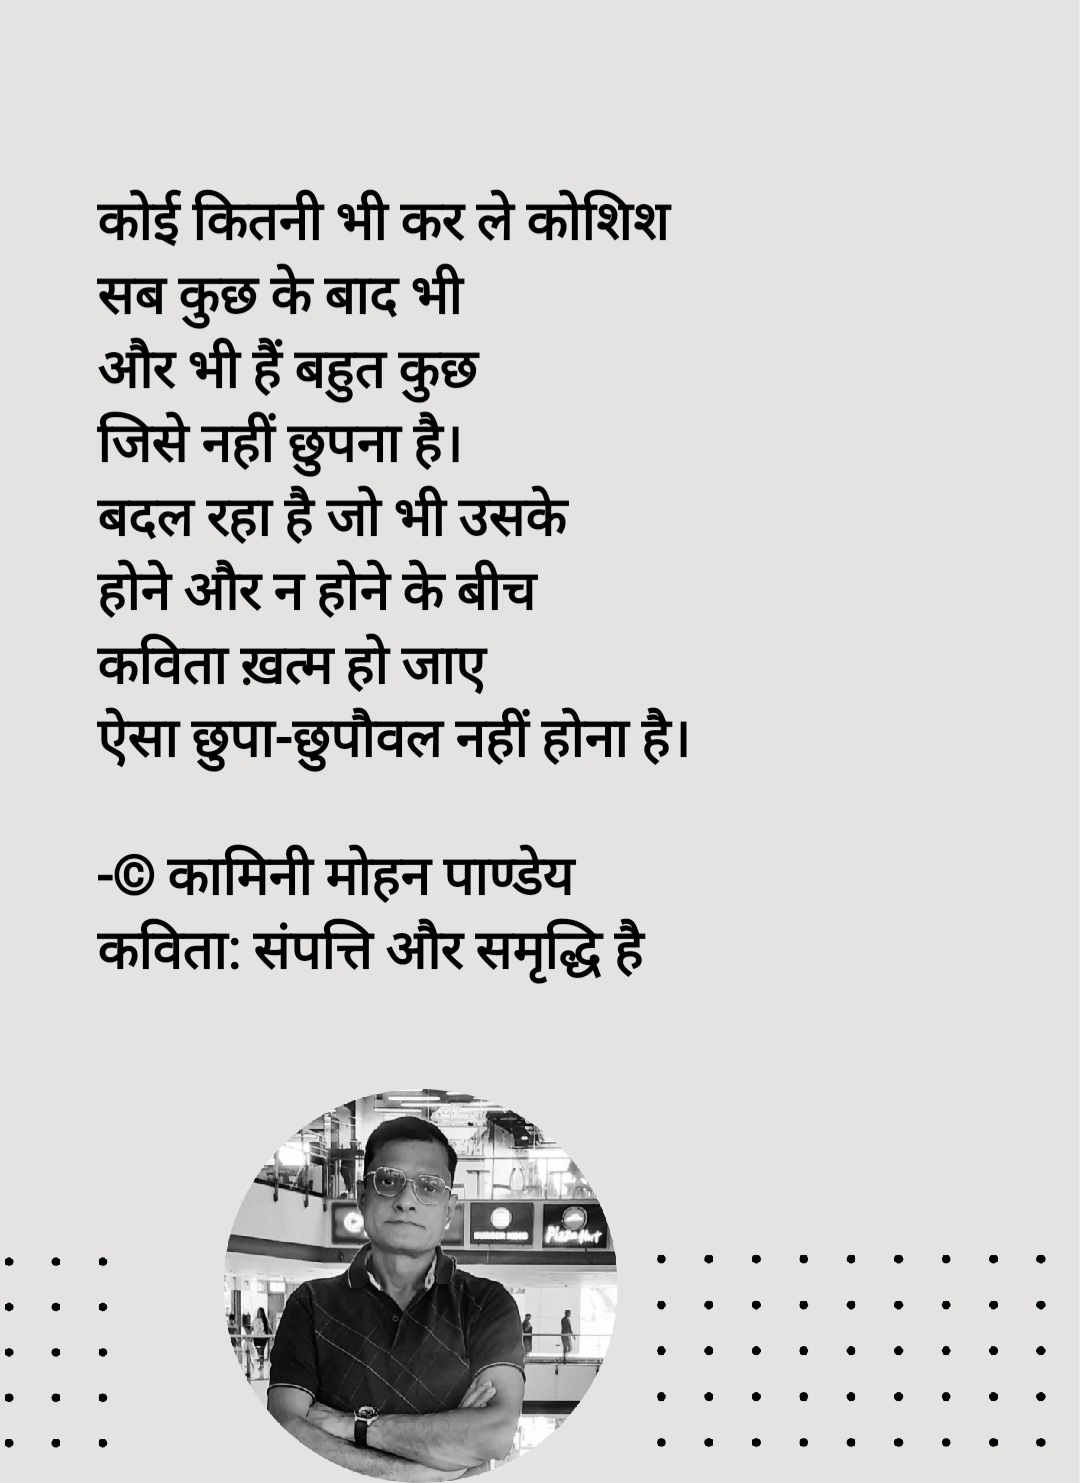 कोई कितनी भी कर ले कोशिश
सब कुछ के बाद भी
और भी हैं बहुत कुछ
जिसे नहीं छुपना है।
बदल रहा है जो भी उसके
होने और न होने के बीच
कविता ख़त्म हो जाए
ऐसा छुपा-छुपौवल नहीं होना है।
-© कामिनी मोहन पाण्डेय
कविता: संपत्ति और समृद्धि है
BURGER KING
Pizza Hut